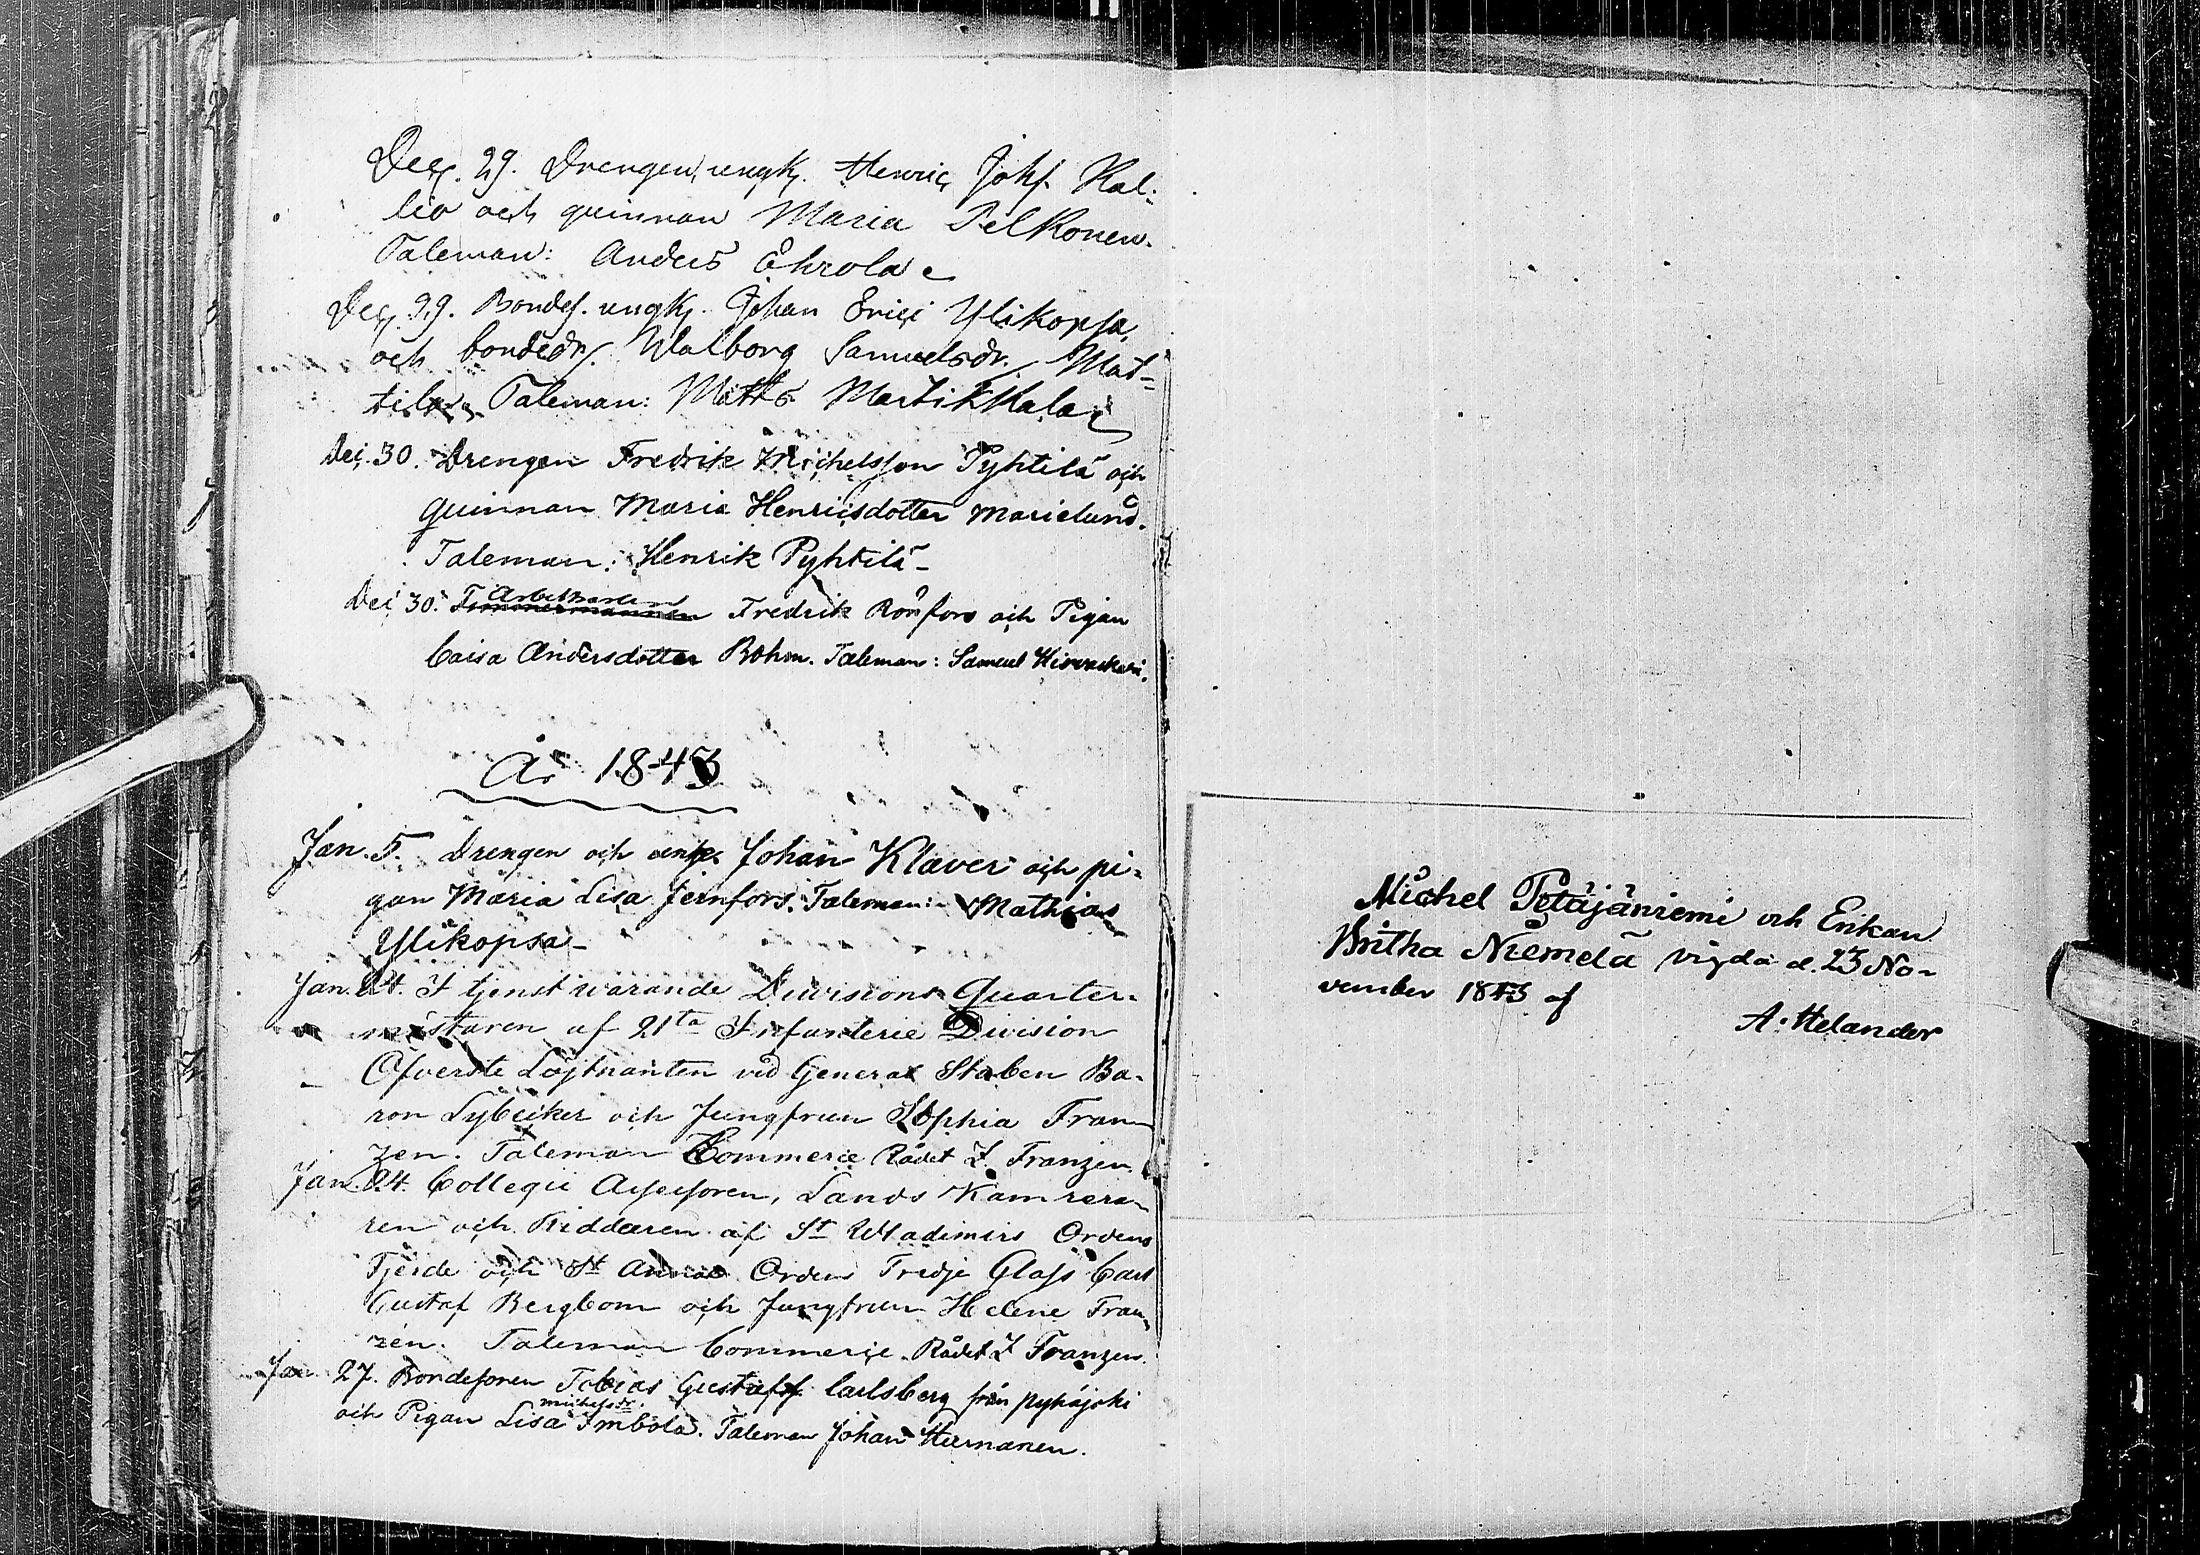 Dec. 29. Drengen, ungk. Henric Johs. Kal-
lio och quinnan Maria Pelkonen.
Taleman: Anders Ehrola
Dec. 29. Bondes. ungk. Johan Erici Ylikopsa,
och bondedr. Walborg Samuelsdr. Mat-
tila. Taleman: Matts Martikkala
Dec. 30. Drengen Fredrik Michelsson Pyhtilä och
Quinnan Maria Henricsdotter Marielund.
Taleman: Henrik Pyhtilä
Dec 30. Timmermannen Arbetkarlen Fredrik Rönfors och Pigan
Caisa Andersdotter Bohm. Taleman: Samuel
År 1843
Jan. 5. Drengen och enk. Johan Klaveri och pi-
gan Maria Lisa Jernfors. Taleman: Mathias
Ylikopsa
Jan. 24. I tjenst warande Divisions Quarter-
mästaren af 21ta Infanterie Division
Öfverste Löjtnanten vid General Staben Ba-
ron Lybecker och Jungfrun Sophia Fran-
zen. Taleman Commerce Rådet Z. Franzen.
Jan. 24. Collegii Assessoren, Lands Kamrera-
ren och Riddaren af St Wladimirs Ordens
Fjerde och St Annae Orden Tredje Glass Carl
Gustaf Bergbom och Jungfrun Helene Fran-
zén. Taleman Commerce Rådet Z Franzen.
Jan 27. Bondesonen Tobias Gustafss. Carlsberg från pyhäjoki
och Pigan Lisa Michelsdr. Imbola. Taleman Johan Hurnanen.
Michel Petäjäniemi och Enkan
Britha Niemelä vigda d. 23 No-
vember 1843 af
A. Helander